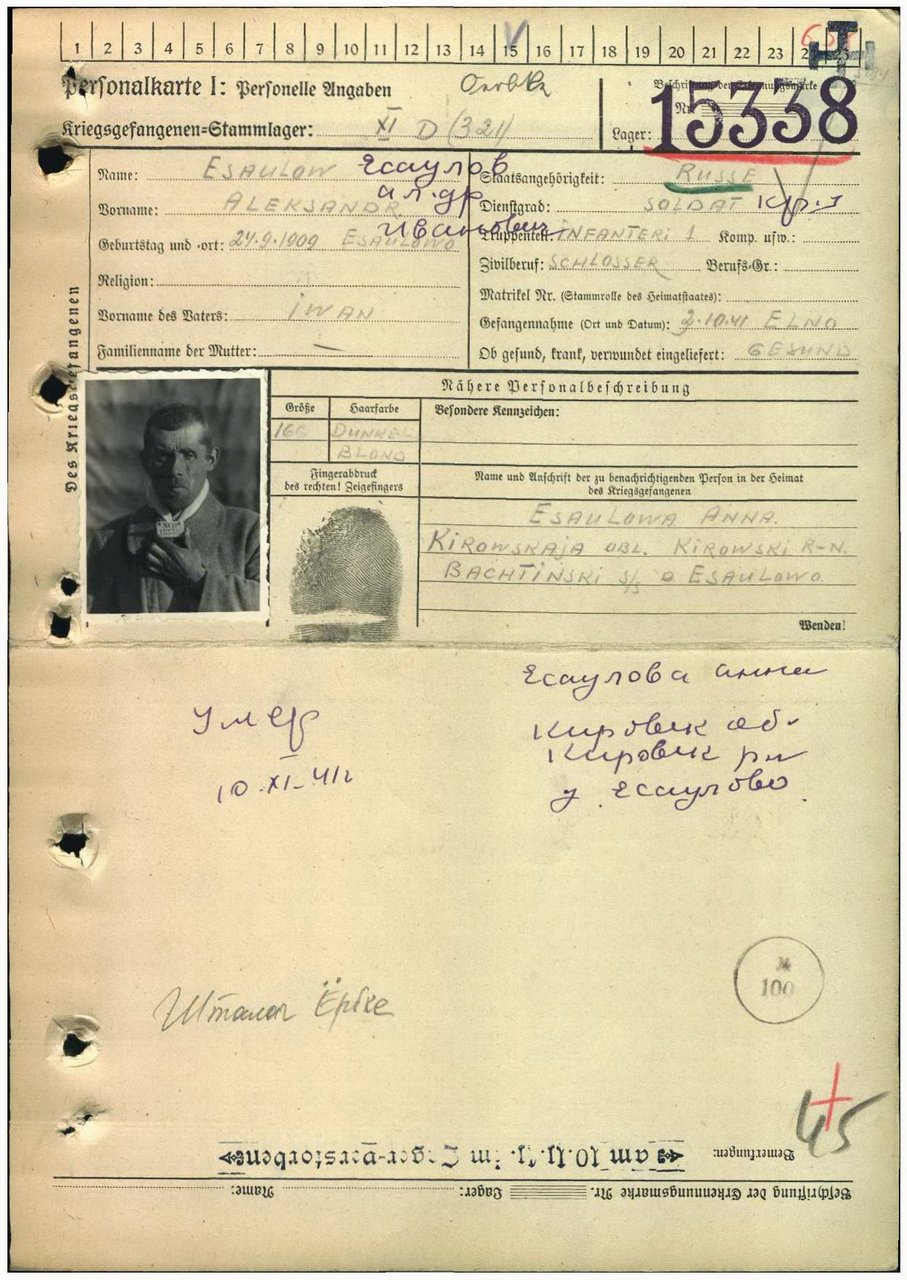 1 2 3 4 5 6 7 8 9 10 11 12 13 14 15 16 17 18 19 20 21 22 23 24 25
Personalkarte I: Personelle Angaben Oerbke
Beschriftung der Erkennungsmarke
Kriegsgefangenen-Stammlager: XI D (321)
Nr. 15338
Lager:
Des Kriegsgefangenen
Name: ESAULOW Есаулов
Vorname: ALEKSANDR ал.др
Иванович
Geburtstag und -ort: 24.9.1909 ESAULOWO
Religion:
Vorname des Vaters: IWAN
Familienname der Mutter: —
Staatsangehörigkeit: RUSSE
Dienstgrad: SOLDAT кр-ц
Truppenteil: INFANTERI 1 Komp. usw.:
Zivilberuf: SCHLOSSER Berufs-Gr.:
Matrikel Nr. (Stammrolle des Heimatstaates):
Gefangennahme (Ort und Datum): 3.10.41 ELNO
Ob gesund, krank, verwundet eingeliefert: GESUND
Nähere Personalbeschreibung
Größe Haarfarbe
166 DUNKEL-
BLOND
Besondere Kennzeichen:
Fingerabdruck
des rechten! Zeigefingers
Name und Anschrift der zu benachrichtigenden Person in der Heimat
des Kriegsgefangenen
ESAULOWA ANNA.
KIROWSKAJA OBL. KIROWSKI R-N.
BACHTINSKI S/S D. ESAULOWO.
Wenden!
Есаулова анна
Умер
10.XI-41г
Кировск об.
Кировск рн
Есаулово
Шталаг Ёрбке
100
45
Bemerkungen:
am 10.11.41. im Lager verstorben
Beschriftung der Erkennungsmarke Nr. Lager: Name: